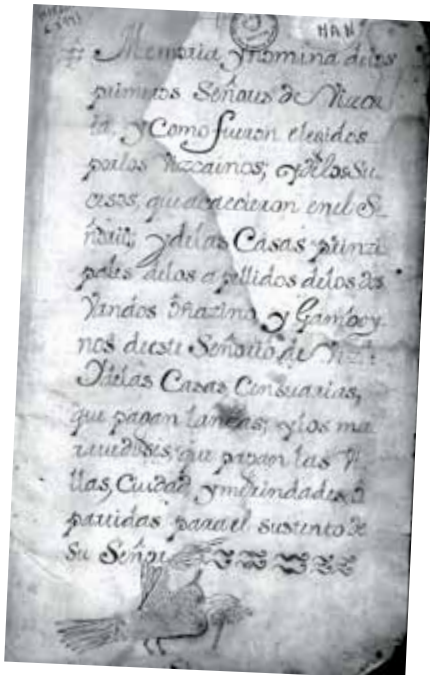 HAN
Memoria, y nomina de los
primeros Señores de Vizca
ia, y Como fueron elegidos
por los Vizcainos; y de los Su
cesos, que acaecieron en el S.
ñorio; y de las Casas prinzi
pales de los apellidos de los dos
Vandos oñazino, y Gamboy
nos de este Señorio de Viz
Y de las Casas Censuarias,
que pagan lanzas; y los ma
ravedises que pagan las V
llas, Ciudad, y merindades
partidas para el sustento de
su Señor